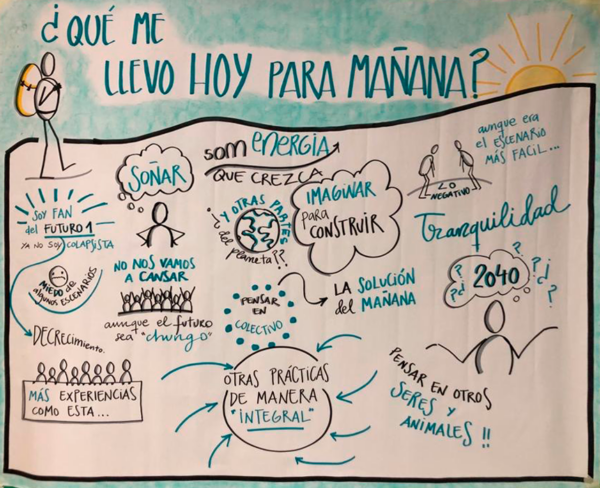 ¿QUÉ ME
LLEVO HOY PARA MAÑANA?
SOY FAN
del FUTURO 1
YA NO SOY COLAPSISTA
MIEDO de
algunos ESCENARIOS
DECRECIMIENTO.
MÁS EXPERIENCIAS
COMO ESTA...
SOÑAR
NO NOS VAMOS
A CANSAR
aunque el futuro
sea "chungo"
som energia
QUE CREZCA
¿Y OTRAS PARTES
del planeta??
IMAGINAR
para
CONSTRUIR
PENSAR
EN
COLECTIVO
LA SOLUCIÓN
del MAÑANA
OTRAS PRÁCTICAS
DE MANERA
"INTEGRAL"
LO
NEGATIVO
aunque era
el ESCENARIO
MÁS FACIL...
Tranquilidad
? ? ¿ 2040 ? ¿ ? ?
PENSAR EN OTROS
SERES y
ANIMALES !!